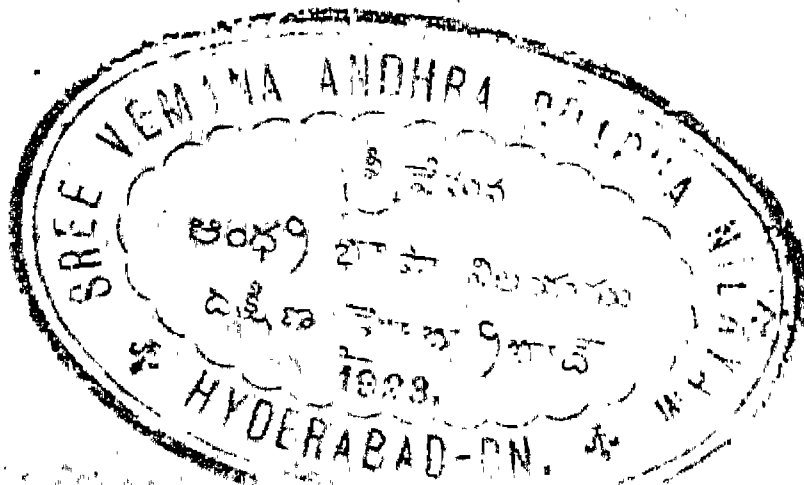 SREE VEMANA ANDHRA NILAYAM
శ్రీ వేమన
ఆంధ్ర భాషా నిలయము
దక్షిణ హైదరాబాద్
HYDERABAD-DN.